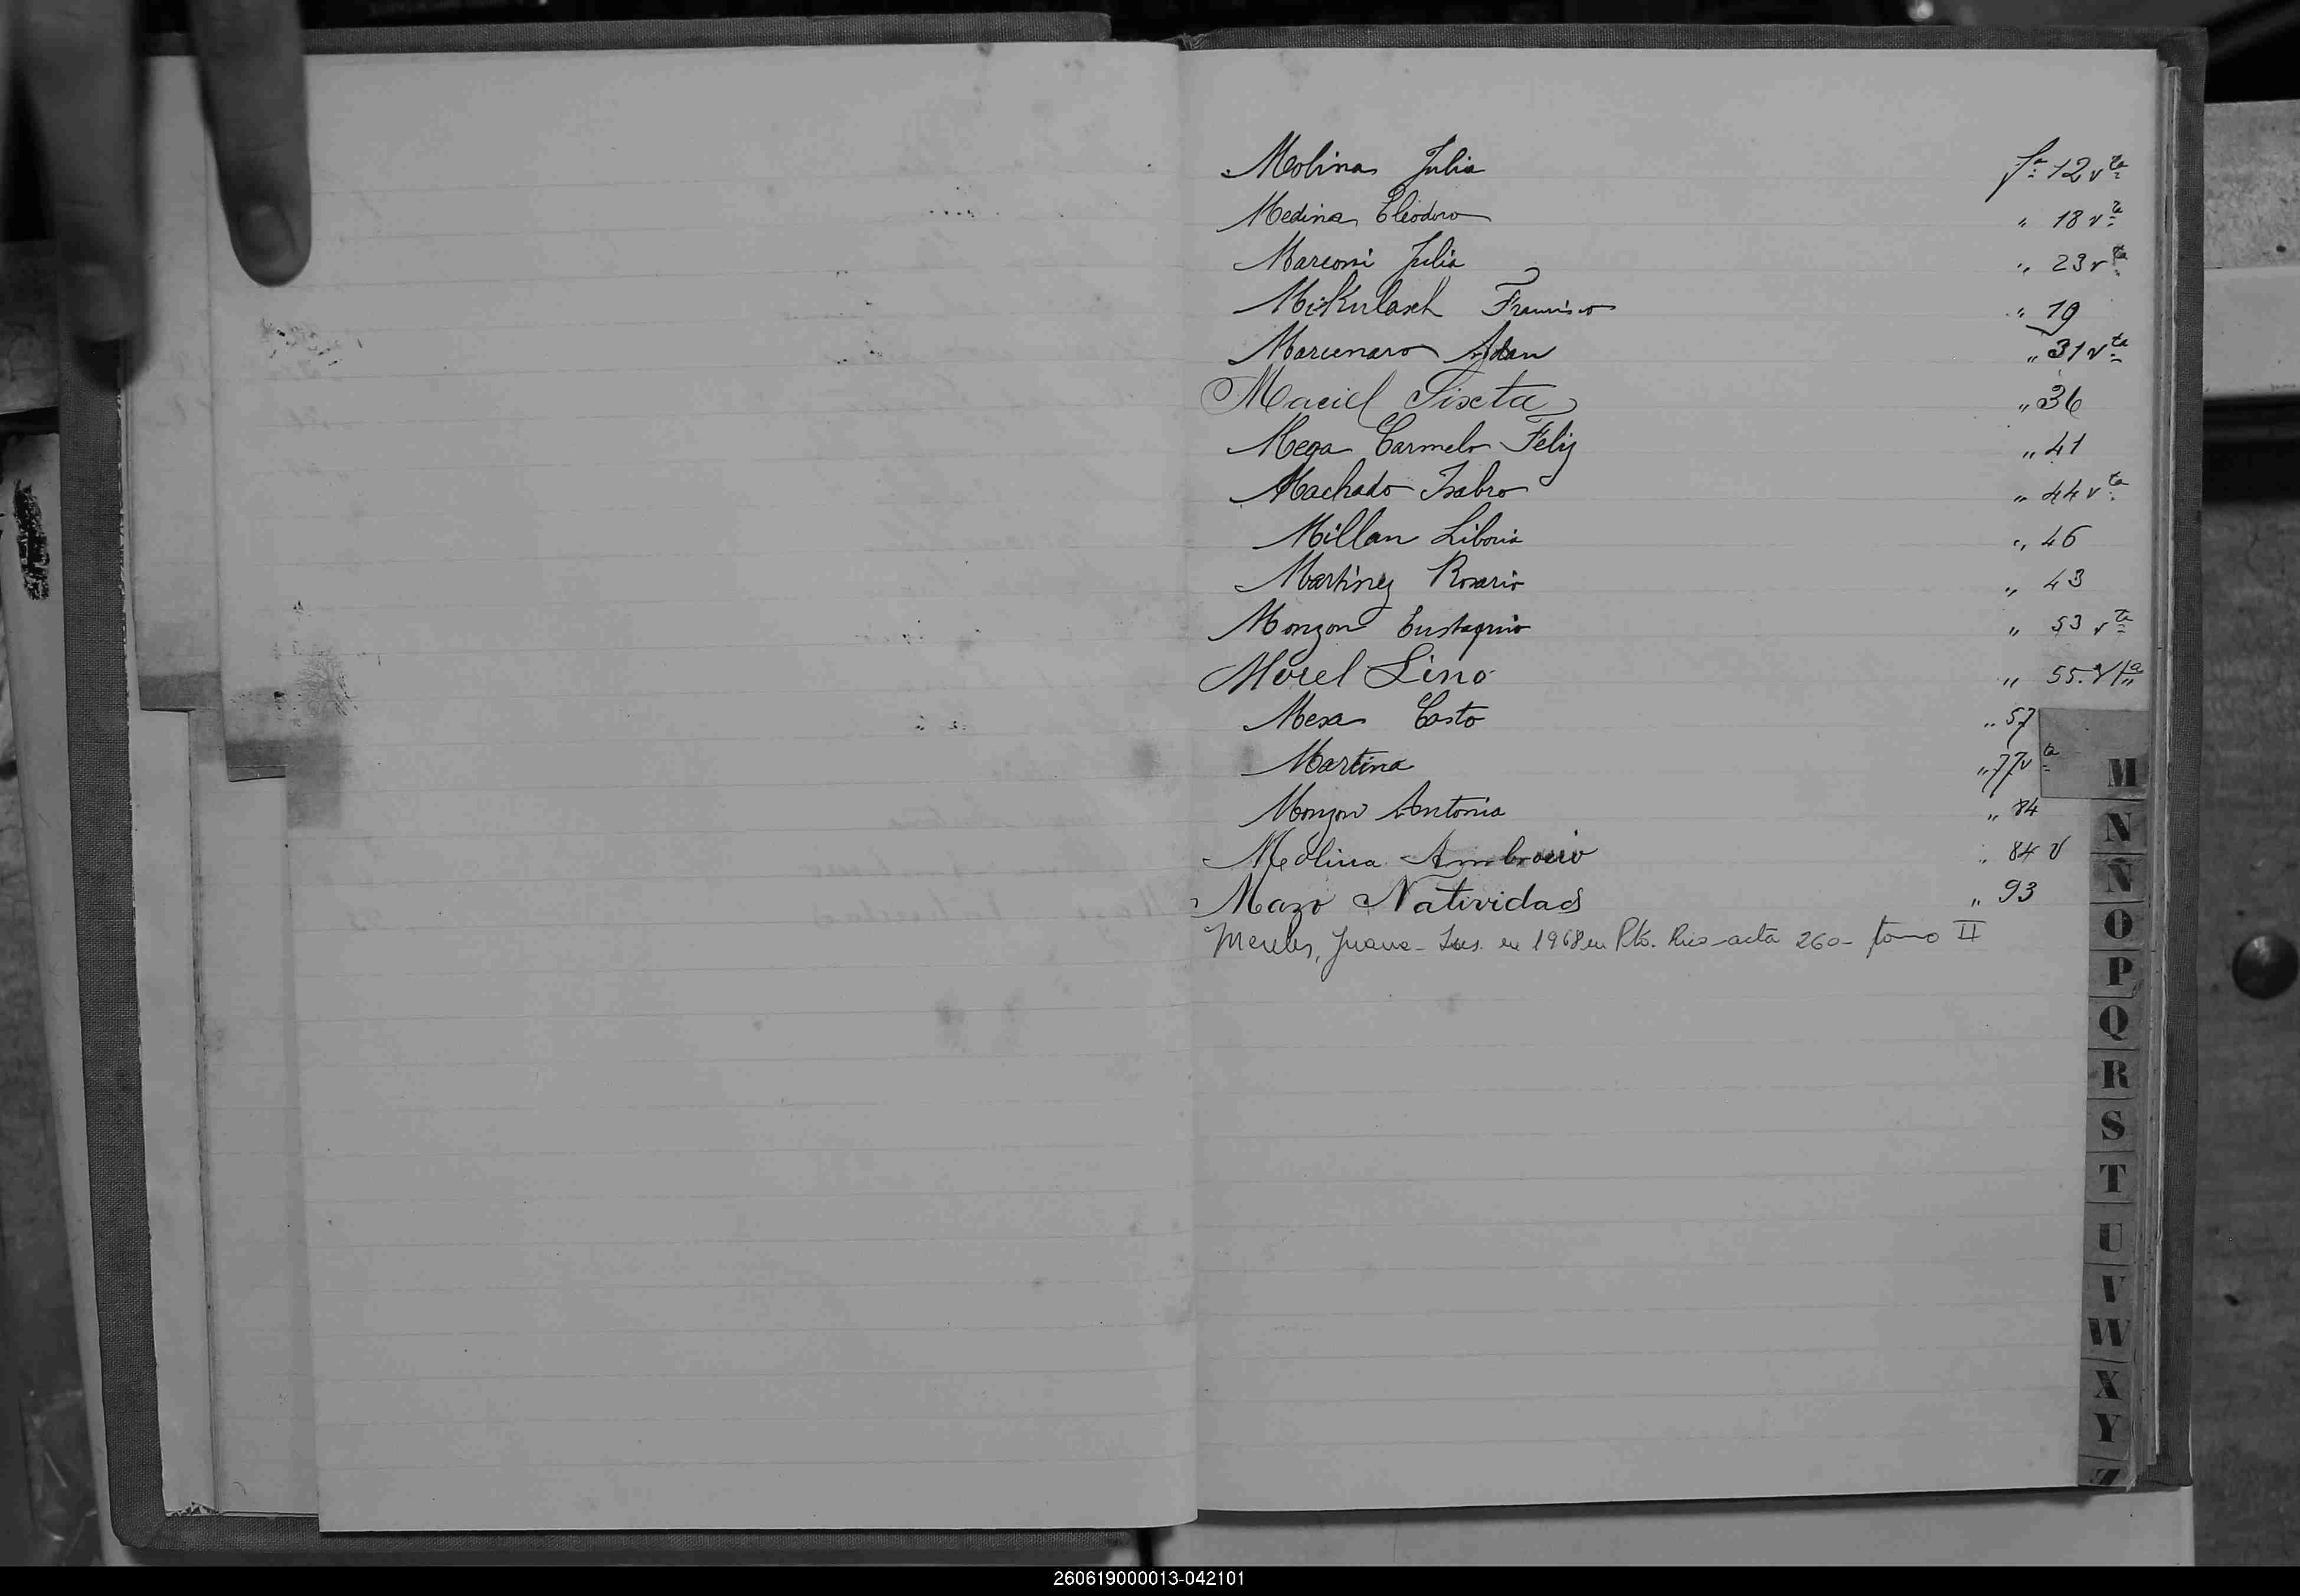 Molina Julia fª 12 vta
Medina Eleodoro " 18 vta
Marconi Julia " 23 vta
Mikulasch Francisco " 19
Marcenaro Adan " 31 vta
Maciel Sixta " 36
Mega Carmelo Feliz " 41
Machado Isabro " 44 vta
Millan Liboria " 46
Martinez Rosario " 43
Monzon Eustaquio " 53 vta
Morel Lino " 55. Vta
Mesa Casto " 57
Martina " 77 vta
Monzon Antonia " 84
Medina Ambrosio " 84 v
Mazo Natividad " 93
Juana - Ins. en 1968 en Pto. Rico - acta 260 - tomo II
M
N
Ñ
O
P
Q
R
S
T
U
V
W
X
Y
Z
260619000013-042101